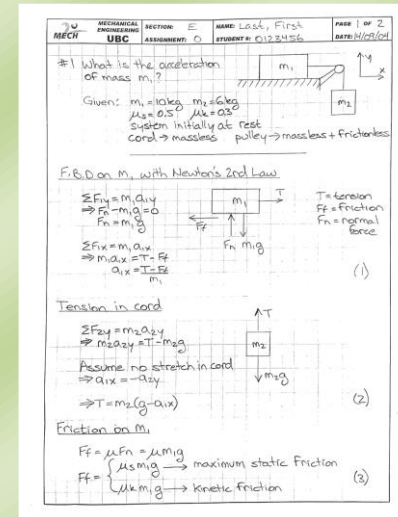 20 MECH
MECHANICAL ENGINEERING UBC
SECTION: E
ASSIGNMENT: O
NAME: Last, First
STUDENT #: 0123456
PAGE 1 OF 2
DATE: 14/09/04
#1 What is the acceleration
of mass m₁?
m₁
y
x
m₂
Given: m₁ = 10kg m₂ = 6kg
μs = 0.5 μk = 0.3
system initially at rest
cord → massless pulley → massless + frictionless
F.B.D on m₁ with Newton's 2nd Law
ΣF₁y = m₁a₁y
⇒ Fn - m₁g = 0
Fn = m₁g
m₁
T
Ff
Fn m₁g
T = tension
Ff = friction
Fn = normal
force
ΣF₁x = m₁a₁x
⇒ m₁a₁x = T - Ff
a₁x = T - Ff / m₁
(1)
Tension in cord
T
ΣF₂y = m₂a₂y
⇒ m₂a₂y = T - m₂g
m₂
m₂g
Assume no stretch in cord
⇒ a₁x = -a₂y
⇒ T = m₂(g - a₁x)
(2)
Friction on m₁
Ff = μFn = μm₁g
Ff = { μs m₁g → maximum static friction
μk m₁g → kinetic friction
(3)